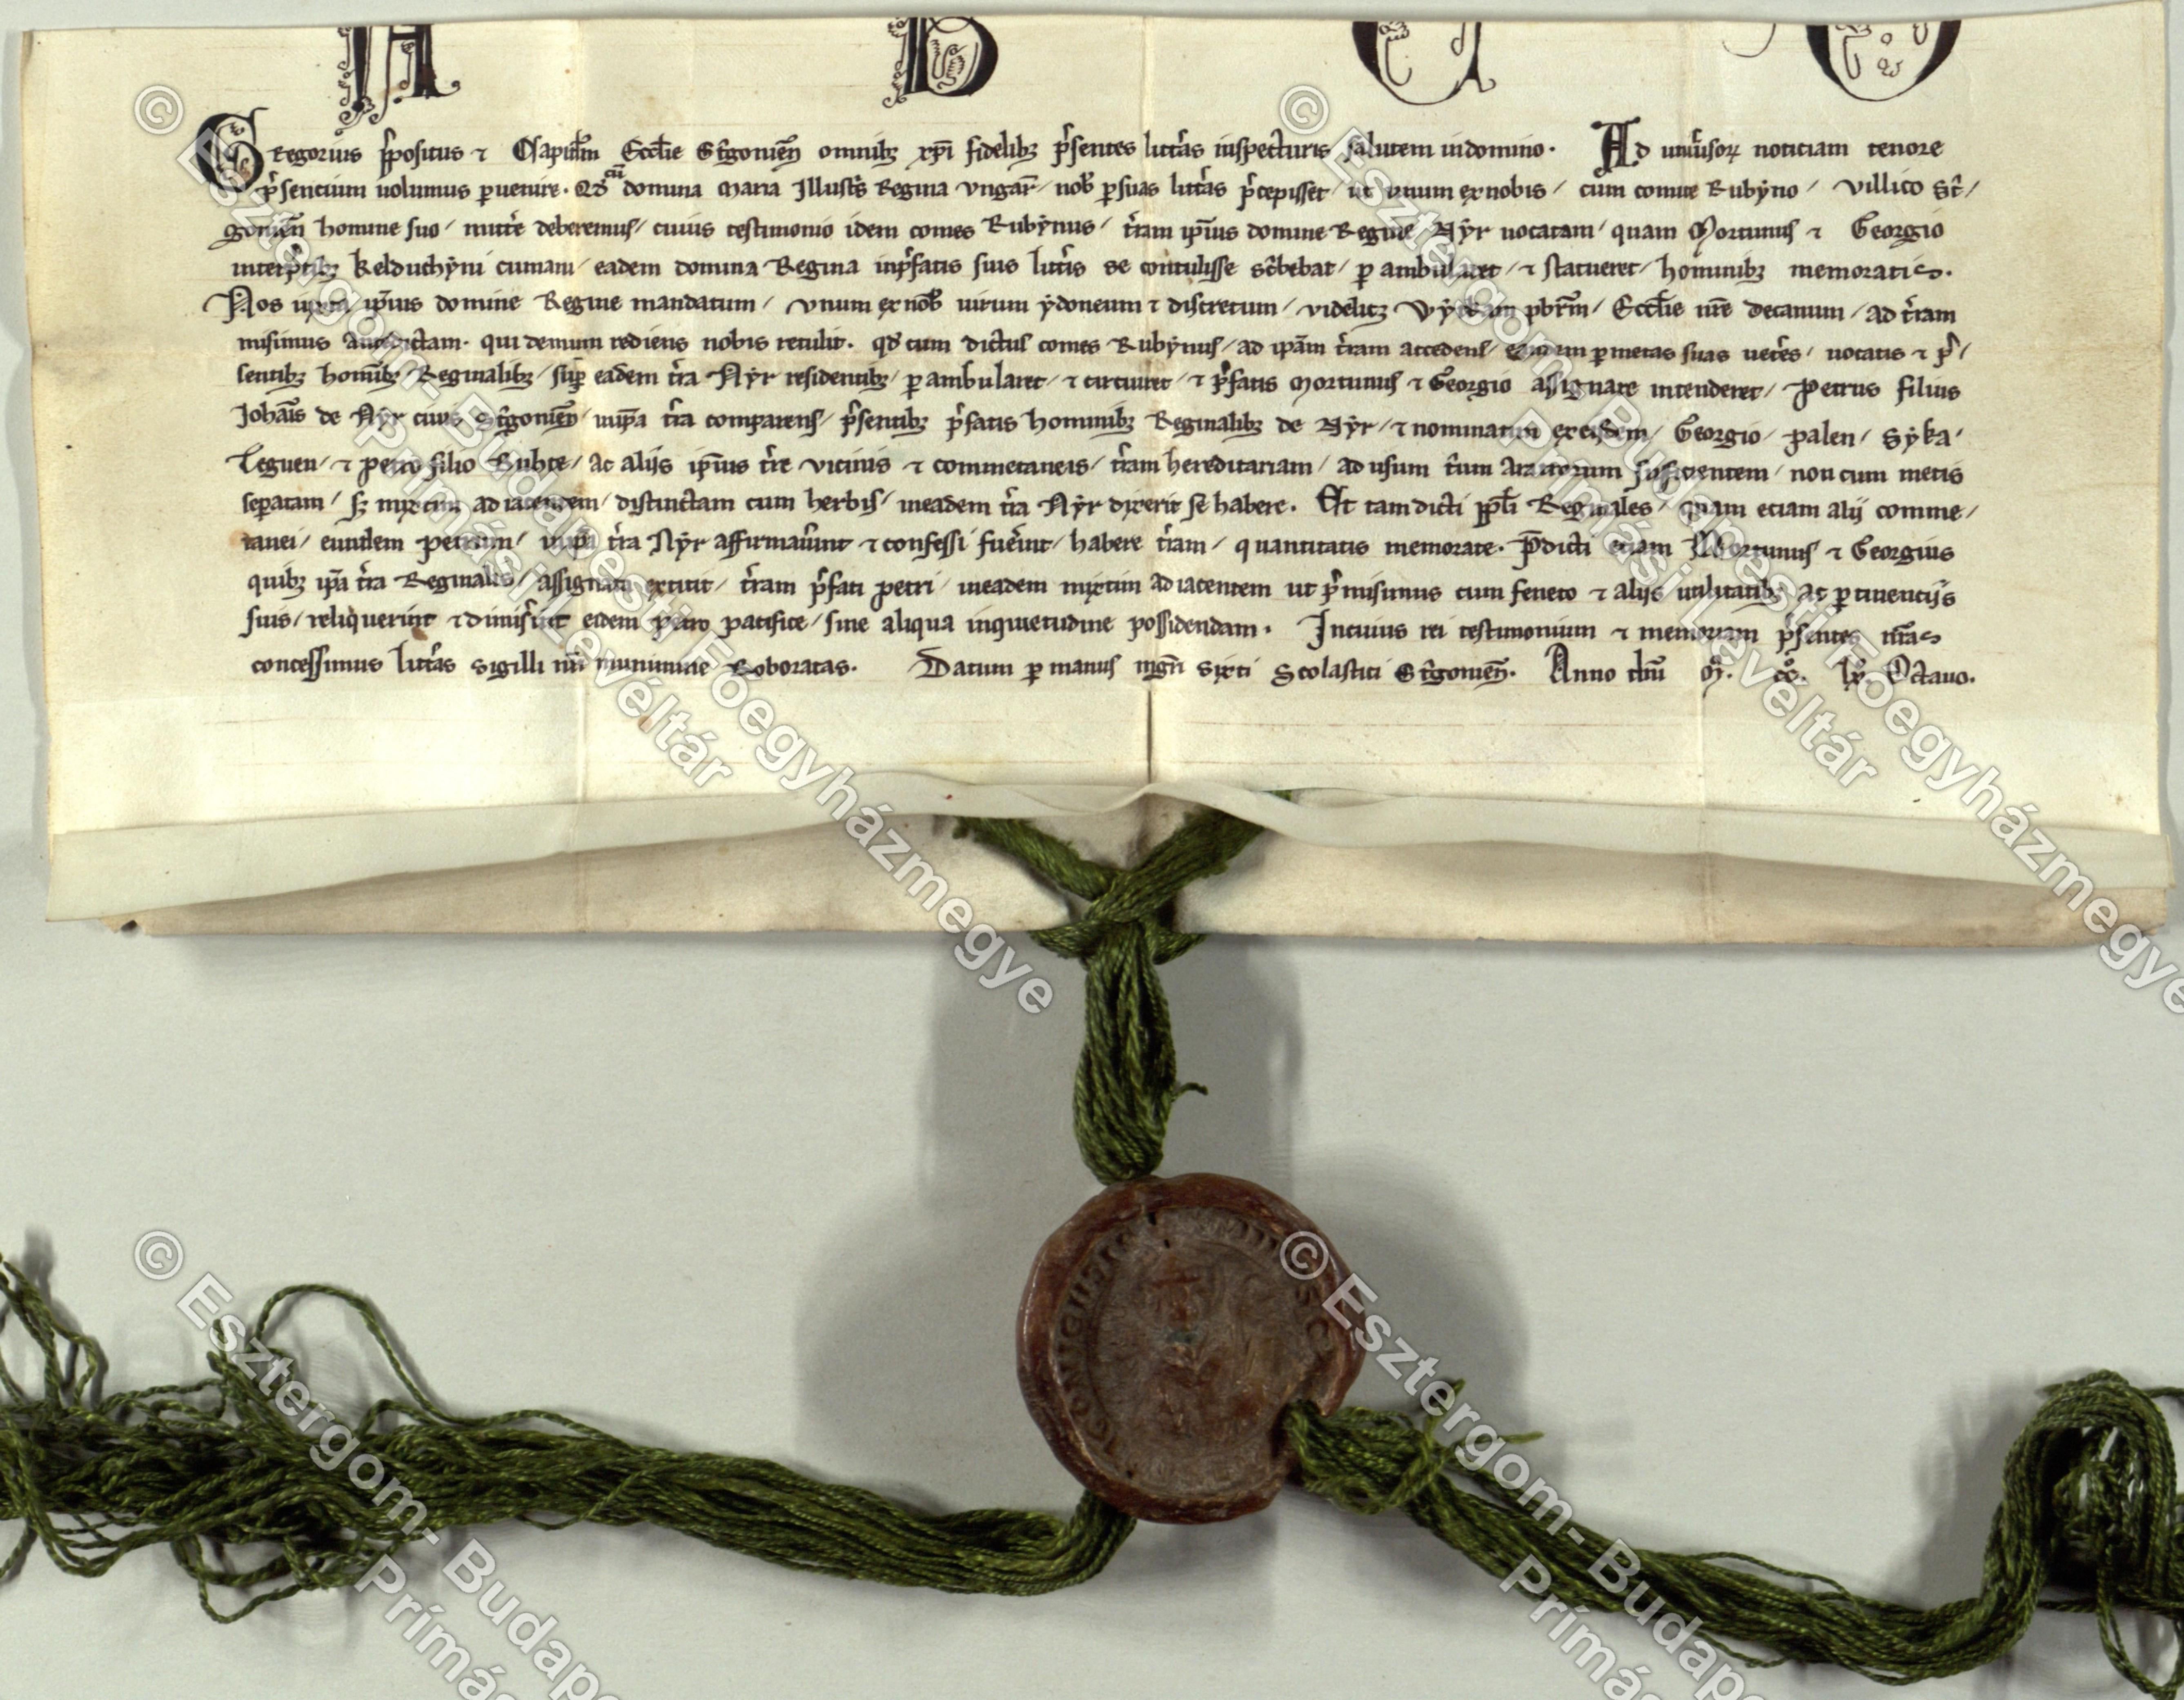 A B C D
Gregorius p̄positus ⁊ Capitłm Eccłie Strigonieñ omnibꝫ xp̄i fidelibꝫ p̄sentes litt̄as inspecturis salutem in domino. Ad univ̄sorꝝ noticiam tenore
p̄sencium uolumus peruenire. Qd cū domina Maria Illustris Regina Vngar̄ / nob̄ per suas litt̄as p̄cepisset / ut unum ex nobis / cum comite Rubyno / villico St̄ /
gonieñ homine suo / mitt̄e deberemus / cuius testimonio idem comes Rubynus / t̄ram ip̄ius domine Regine Nyr uocatam / quam Mortunus ⁊ Georgio
interp̄tibꝫ Kelduchyni cumani / eadem domina Regina in p̄fatis suis litt̄is se contulisse sc̄bebat / perambularet / ⁊ statueret / hominibꝫ memoratis.
Nos iuxta ip̄ius domine Regine mandatum / vnum ex nob̄ uirum ydoneum ⁊ discretum / videlicꝫ pbr̄m / Eccłie nr̄e decanum / ad t̄ram
misimus antedictam. qui demum rediens nobis retulit. qd cum dictus comes Rubynus / ad ip̄am t̄ram accedens / eam per metas suas uet̄es / uocatis ⁊ p̄ /
sentibꝫ hominibꝫ Reginalibꝫ / sup̄ eadem t̄ra Nyr residentibꝫ / perambularet / ⁊ circuiret / ⁊ p̄fatis Mortunus ⁊ Georgio assignare intenderet / Petrus filius
Johan̄is de Nyr ciuis Strigonieñ / in ip̄a t̄ra comparens / p̄sentibꝫ p̄fatis hominibꝫ Reginalibꝫ de Nyr / ⁊ nominatim ex eisdem / Georgio / Palen / Syka /
Leguen / ⁊ Petro filio Buhte / ac alijs ip̄ius t̄re vicinis ⁊ commetaneis / t̄ram hereditariam / ad usum t̄ium aratrorum sufficientem / non cum metis
sep̄atam / sꝫ mixtim adiacentem / distinctam cum herbis / in eadem t̄ra Nyr dixerit se habere. Et tam dicti pp̄li Reginales / quam eciam alij comme /
tanei / eundem Petrum / in ip̄a t̄ra Nyr affirmav̄unt ⁊ confessi fuer̄unt / habere t̄ram / quantitatis memorate. P̄dicti eciam Mortunus ⁊ Georgius
quibꝫ ip̄a t̄ra Reginalis / assignata extitit / t̄ram p̄fati Petri / in eadem mixtim adiacentem ut p̄misimus cum feneto ⁊ alijs utilitatibꝫ ac pertinencijs
suis / reliquerunt ⁊ dimiser̄unt eidem Petro pacifice / sine aliqua inquietudine possidendam. In cuius rei testimonium ⁊ memoriam p̄sentes nr̄as
concessimus litt̄as sigilli nr̄i munimine Roboratas. Datum per manus mgr̄i Sixti Scolastici Strigonieñ. Anno dn̄i Mͦ. CCͦ. lxͦ. Octauo.
© Esztergom-Budapesti Főegyházmegye
Prímási Levéltár
© Esztergom-Budapesti Főegyházmegye
Prímási Levéltár
© Esztergom-Budapes
Prímás
© Esztergom-Budapes
Prímás